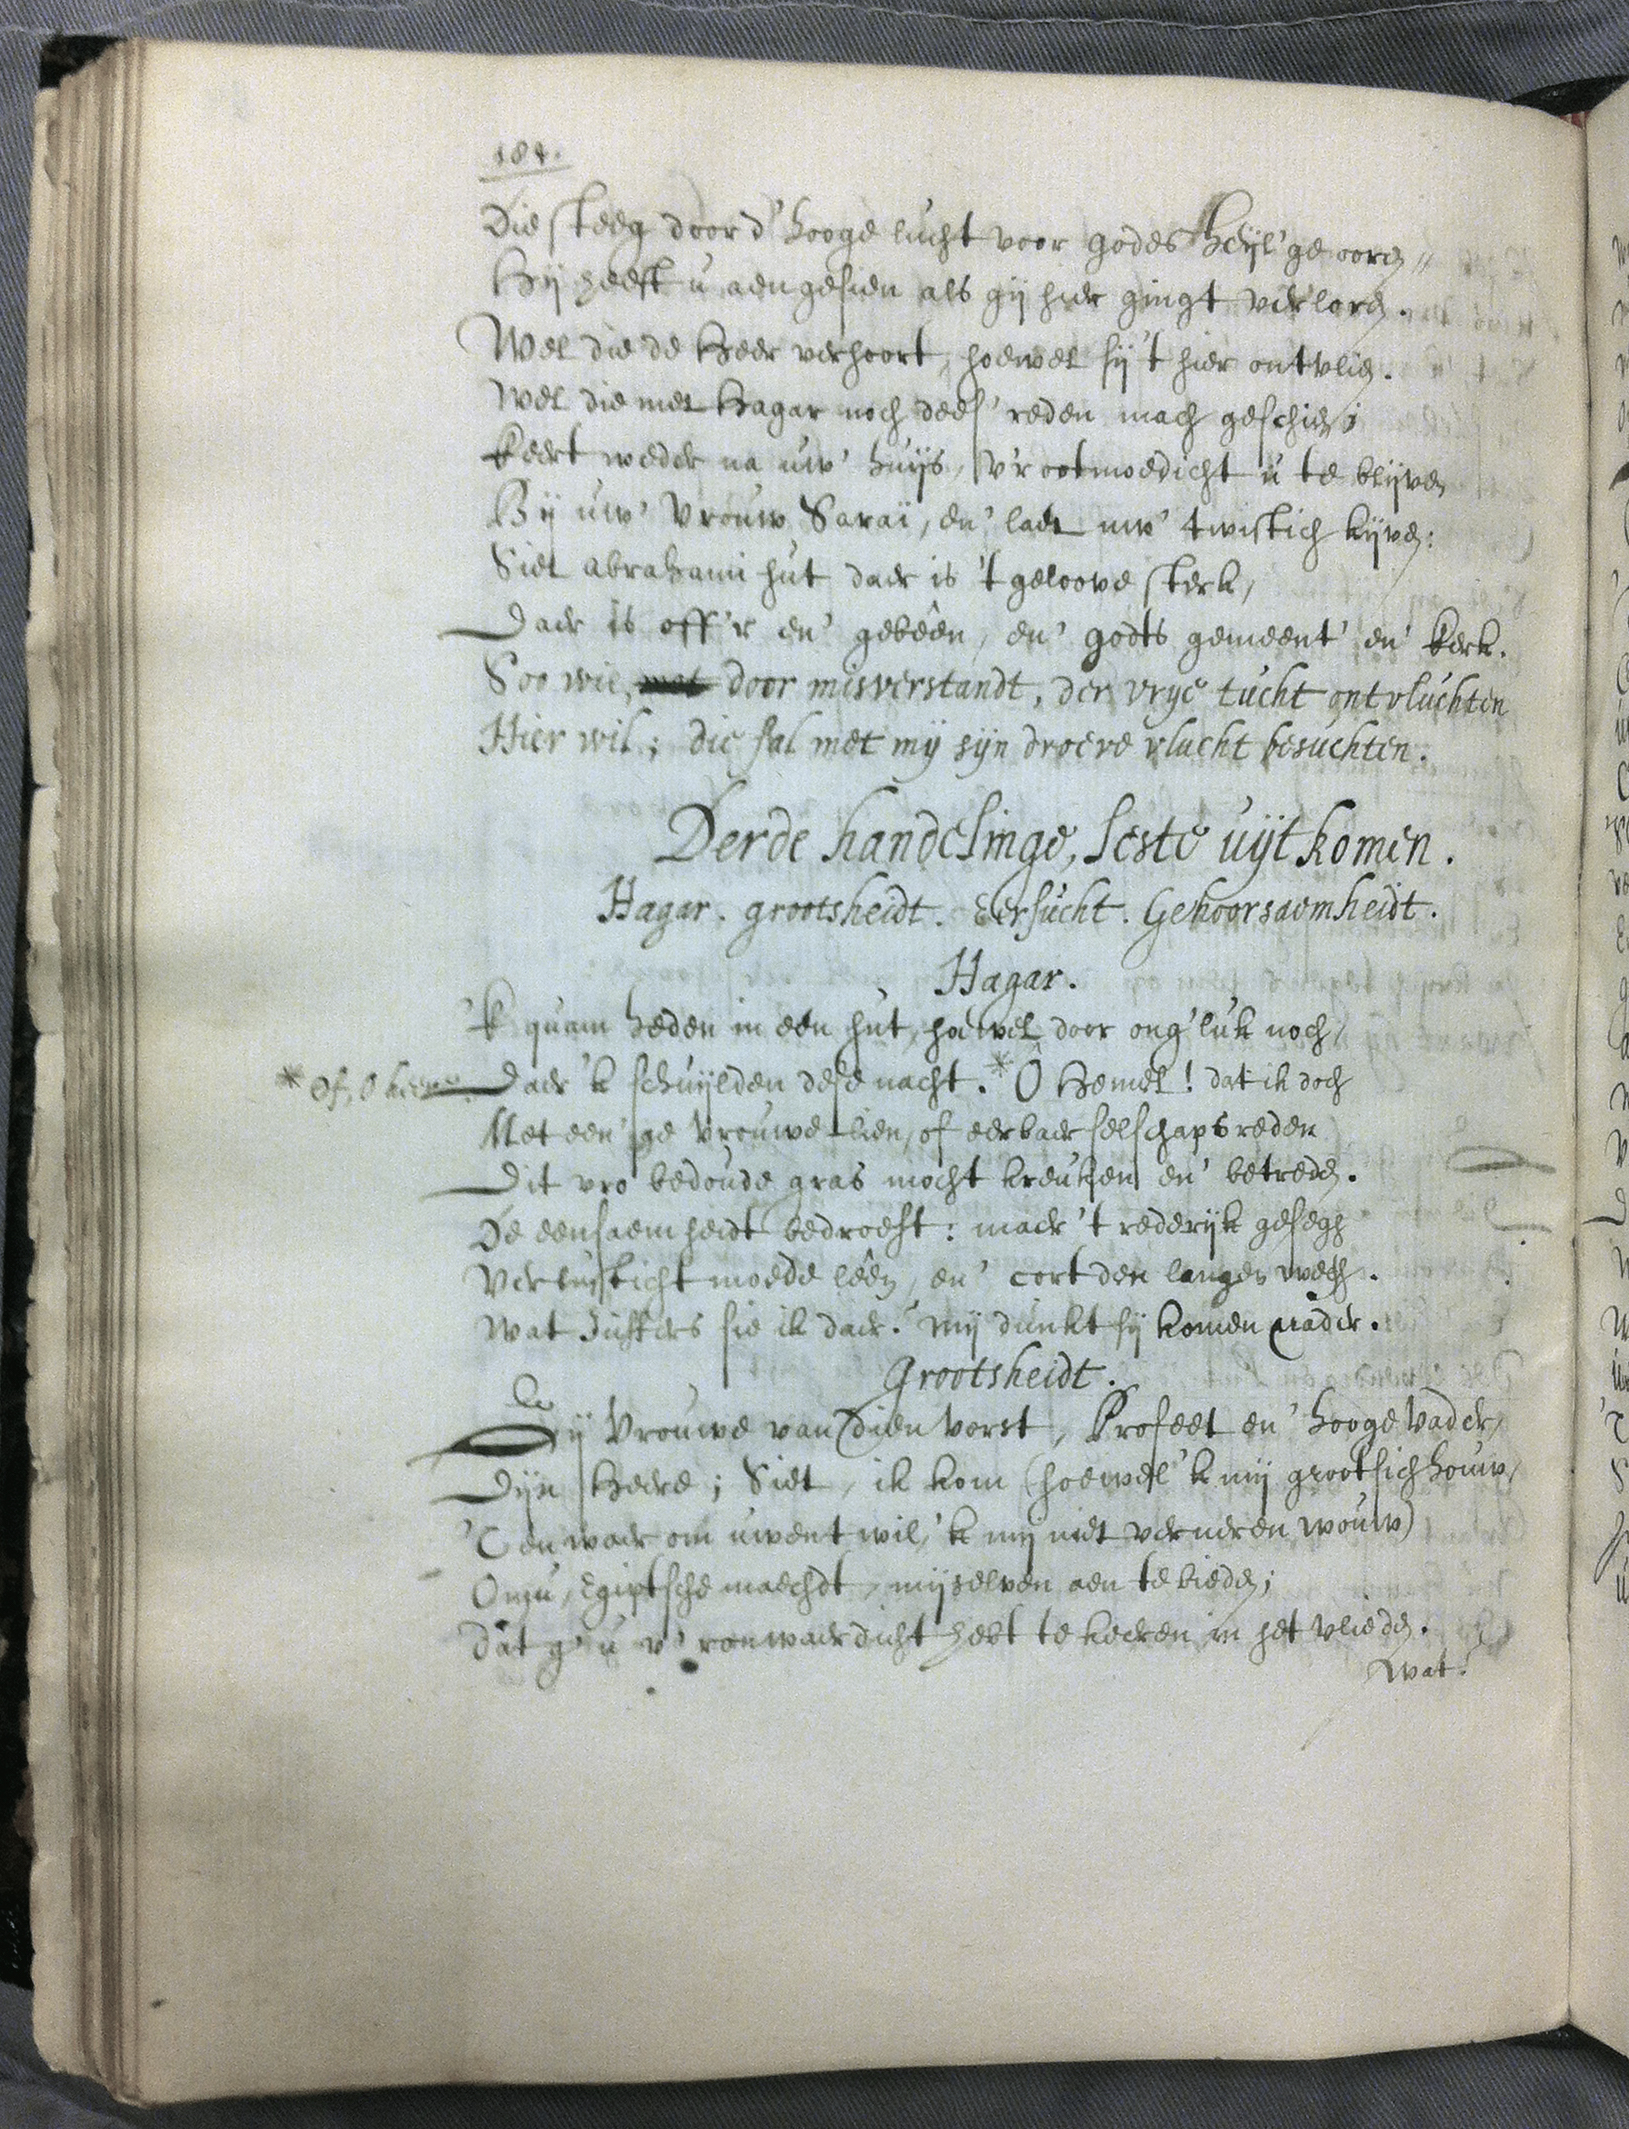 184.
Die steeg door d' hooge lucht voor godes heijl'ge ooren
Hij heeft u aengesien als gij hier gingt verloren.
Wel die de Heer verhoort, hoewel sij 't hier ontvlien.
Wel die met Hagar noch dees' reden mach geschien;
Keert weder na uw' huijs, v'rootmoedicht u te blijven
Bij uw' Vrouw Saraï, en' laet uw' twistich kijven:
Siet abrahams hut daer is 't geloove sterk,
Daer is off'r en' gebêen, en' godts gemeent' en' kerk.
Soo wie, door misverstandt, der vrye tucht ontvluchten
Hier wil; die sal met mij sijn droeve vlucht besuchten.
Derde handelinge, seste uijtkomen.
Hagar. grootsheidt. Eersucht. Gehoorsaemheidt.
Hagar.
'k quam heden in een hut, hoewel door ong'luk noch,
* Of, O heere. Daer 'k schuijlden dese nacht. * Ô Hemel! dat ik doch
Met een'ge Vrouwe-lien, of eerbaer selschaps reden
Dit vro bedoude gras mocht kreuken en' betreden.
De eensaemheidt bedroeft: maer 't rederijk gesegh
Verlusticht moede lêen, en' cort den langen wech.
Wat Juffers sie ik daer? mij dunkt sij komen nader.
Grootsheidt.
Gij Vrouwe van dien Vorst, Profeet en' hooge Vader,
Dijn Heere; Siet, ik kom (hoewel 'k mij grootsich houw,
'T en waer om uwent wil, 'k mij niet verneren wouw)
Om u, Egiptsche maechdt, mijselven aen te bieden;
Dat g' u v'ronwaerdicht hebt te keeren in het vlieden.
Wat